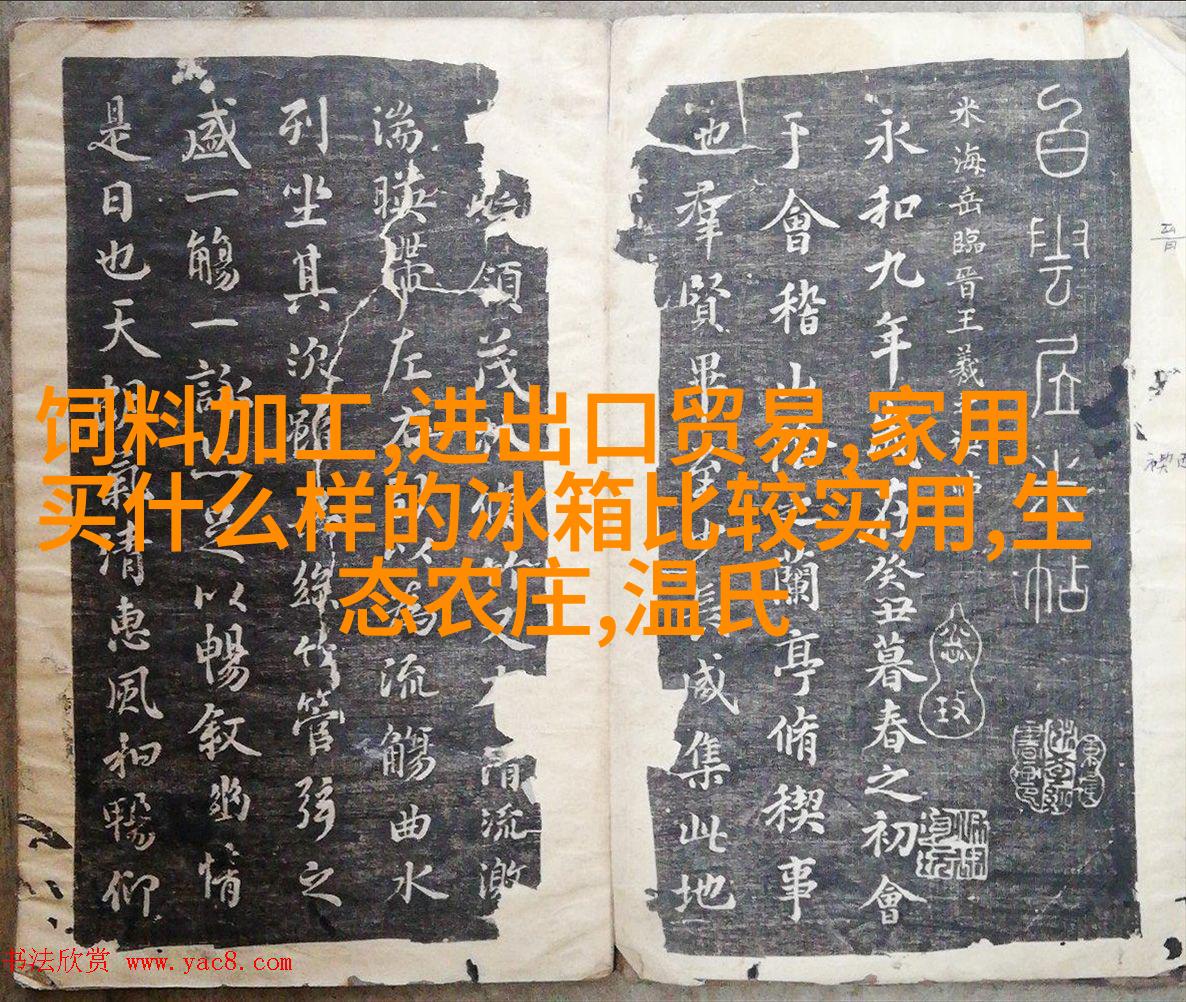 饲料加工,进出口贸易,家用
买什么样的冰箱比较实用,生
态农庄,温氏
白雲居米帖
米海岳臨晉王羲之禊帖
永和九年歲在癸丑暮春之初會
于會稽山陰之蘭亭脩稧事
也羣賢畢至少長咸集此地
領茂林脩竹又清流激
湍暎帶左右引以為流觴曲水
列坐其次雖無絲竹管弦之
盛一觴一詠亦足以暢敘幽情
是日也天朗氣清惠風和暢仰
书法欣赏 www.yac8.com